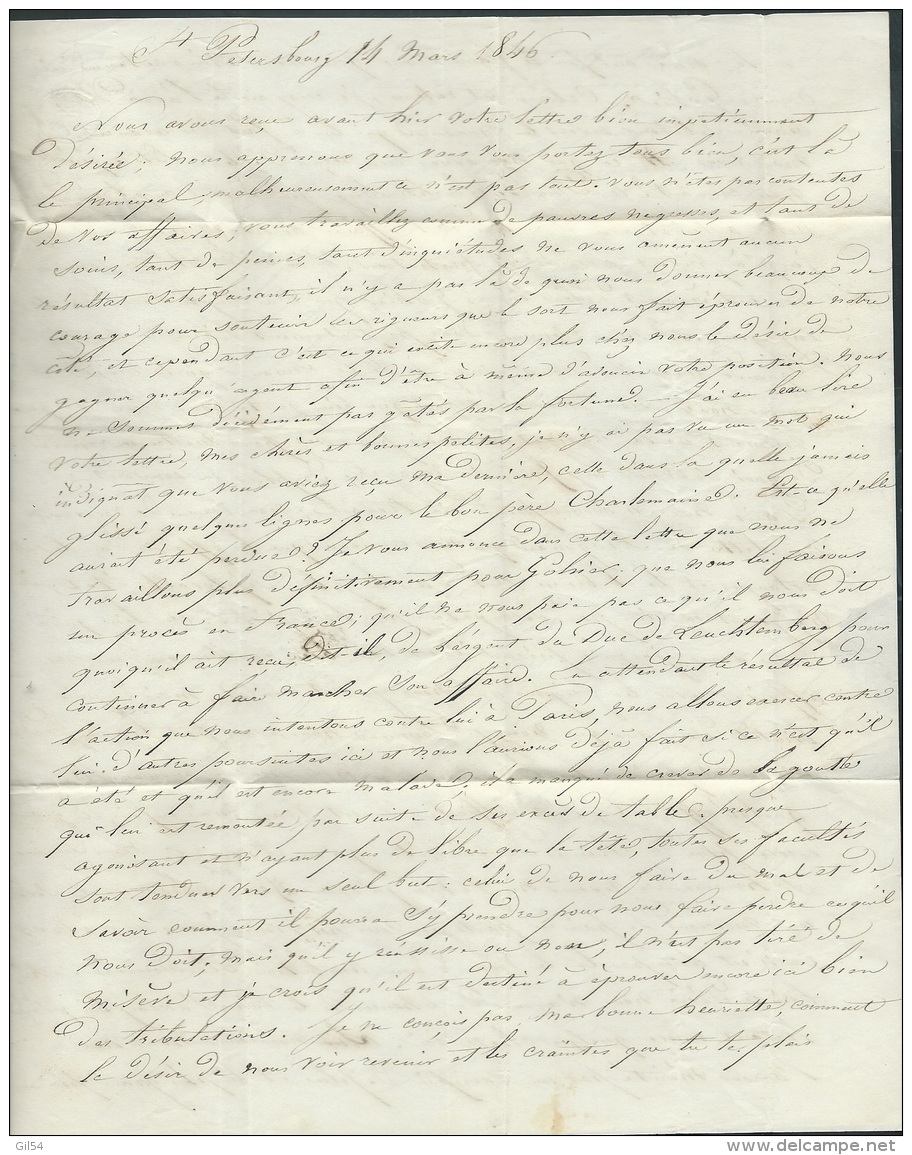 St Petersbourg 14 Mars 1846.
Nous avons reçu avant hier votre lettre bien impatiemment
désirée; nous apprenons que vous vous portez tous bien, c'est là
le principal, malheureusement ce n'est pas tout. Vous n'êtes pas contentes
de vos affaires, vous travaillez comme de pauvres negresses, et tant de
soins, tant de peines, tant d'inquiétudes ne vous amènent aucun
résultat satisfaisant, il n'y a pas là de quoi nous donner beaucoup de
courage pour soutenir les rigueurs que le sort nous fait éprouver de notre
coté, et cependant c'est ce qui excite encore plus chez nous le désir de
gagner quelqu'argent afin d'être à même d'adoucir votre position. Nous
ne sommes décidément pas gâtés par la fortune. — J'ai eu beau lire
votre lettre, mes chères et bonnes petites, je n'y ai pas vu un mot qui
indiquât que vous aviez reçu ma dernière, celle dans la quelle j'avais
glissé quelques lignes pour le bon père Charlemaine. Est-ce qu'elle
aurait été perdue? Je vous annonce dans cette lettre que nous ne
travaillons plus définitivement pour ; que nous lui faisons
un procès en France; qu'il ne nous paie pas ce qu'il nous doit
quoiqu'il ait reçu, dit-il, de l'argent du Duc de Leuchtemberg pour
continuer à faire marcher son affaire. En attendant le résultat de
l'action que nous intentons contre lui à Paris, nous allons exercer contre
lui d'autres poursuites ici et nous l'aurions déjà fait si ce n'est qu'il
a été et qu'il est encore malade, il a manqué de crever de la goutte
qui lui est remontée par suite de ses excès de table, presque
agonisant et n'ayant plus de libre que la tête, toutes ses facultés
sont tendues vers un seul but: celui de nous faire du mal et de
savoir comment il pourra s'y prendre pour nous faire perdre ce qu'il
nous doit, mais qu'il y réussisse ou non, il n'est pas tiré de
misère et je crois qu'il est destiné à éprouver encore ici bien
des tribulations. Je ne conçois pas, ma bonne henriette, comment
le désir de nous voir revenir et les craintes que tu te plais
Gil54
www.delcampe.net